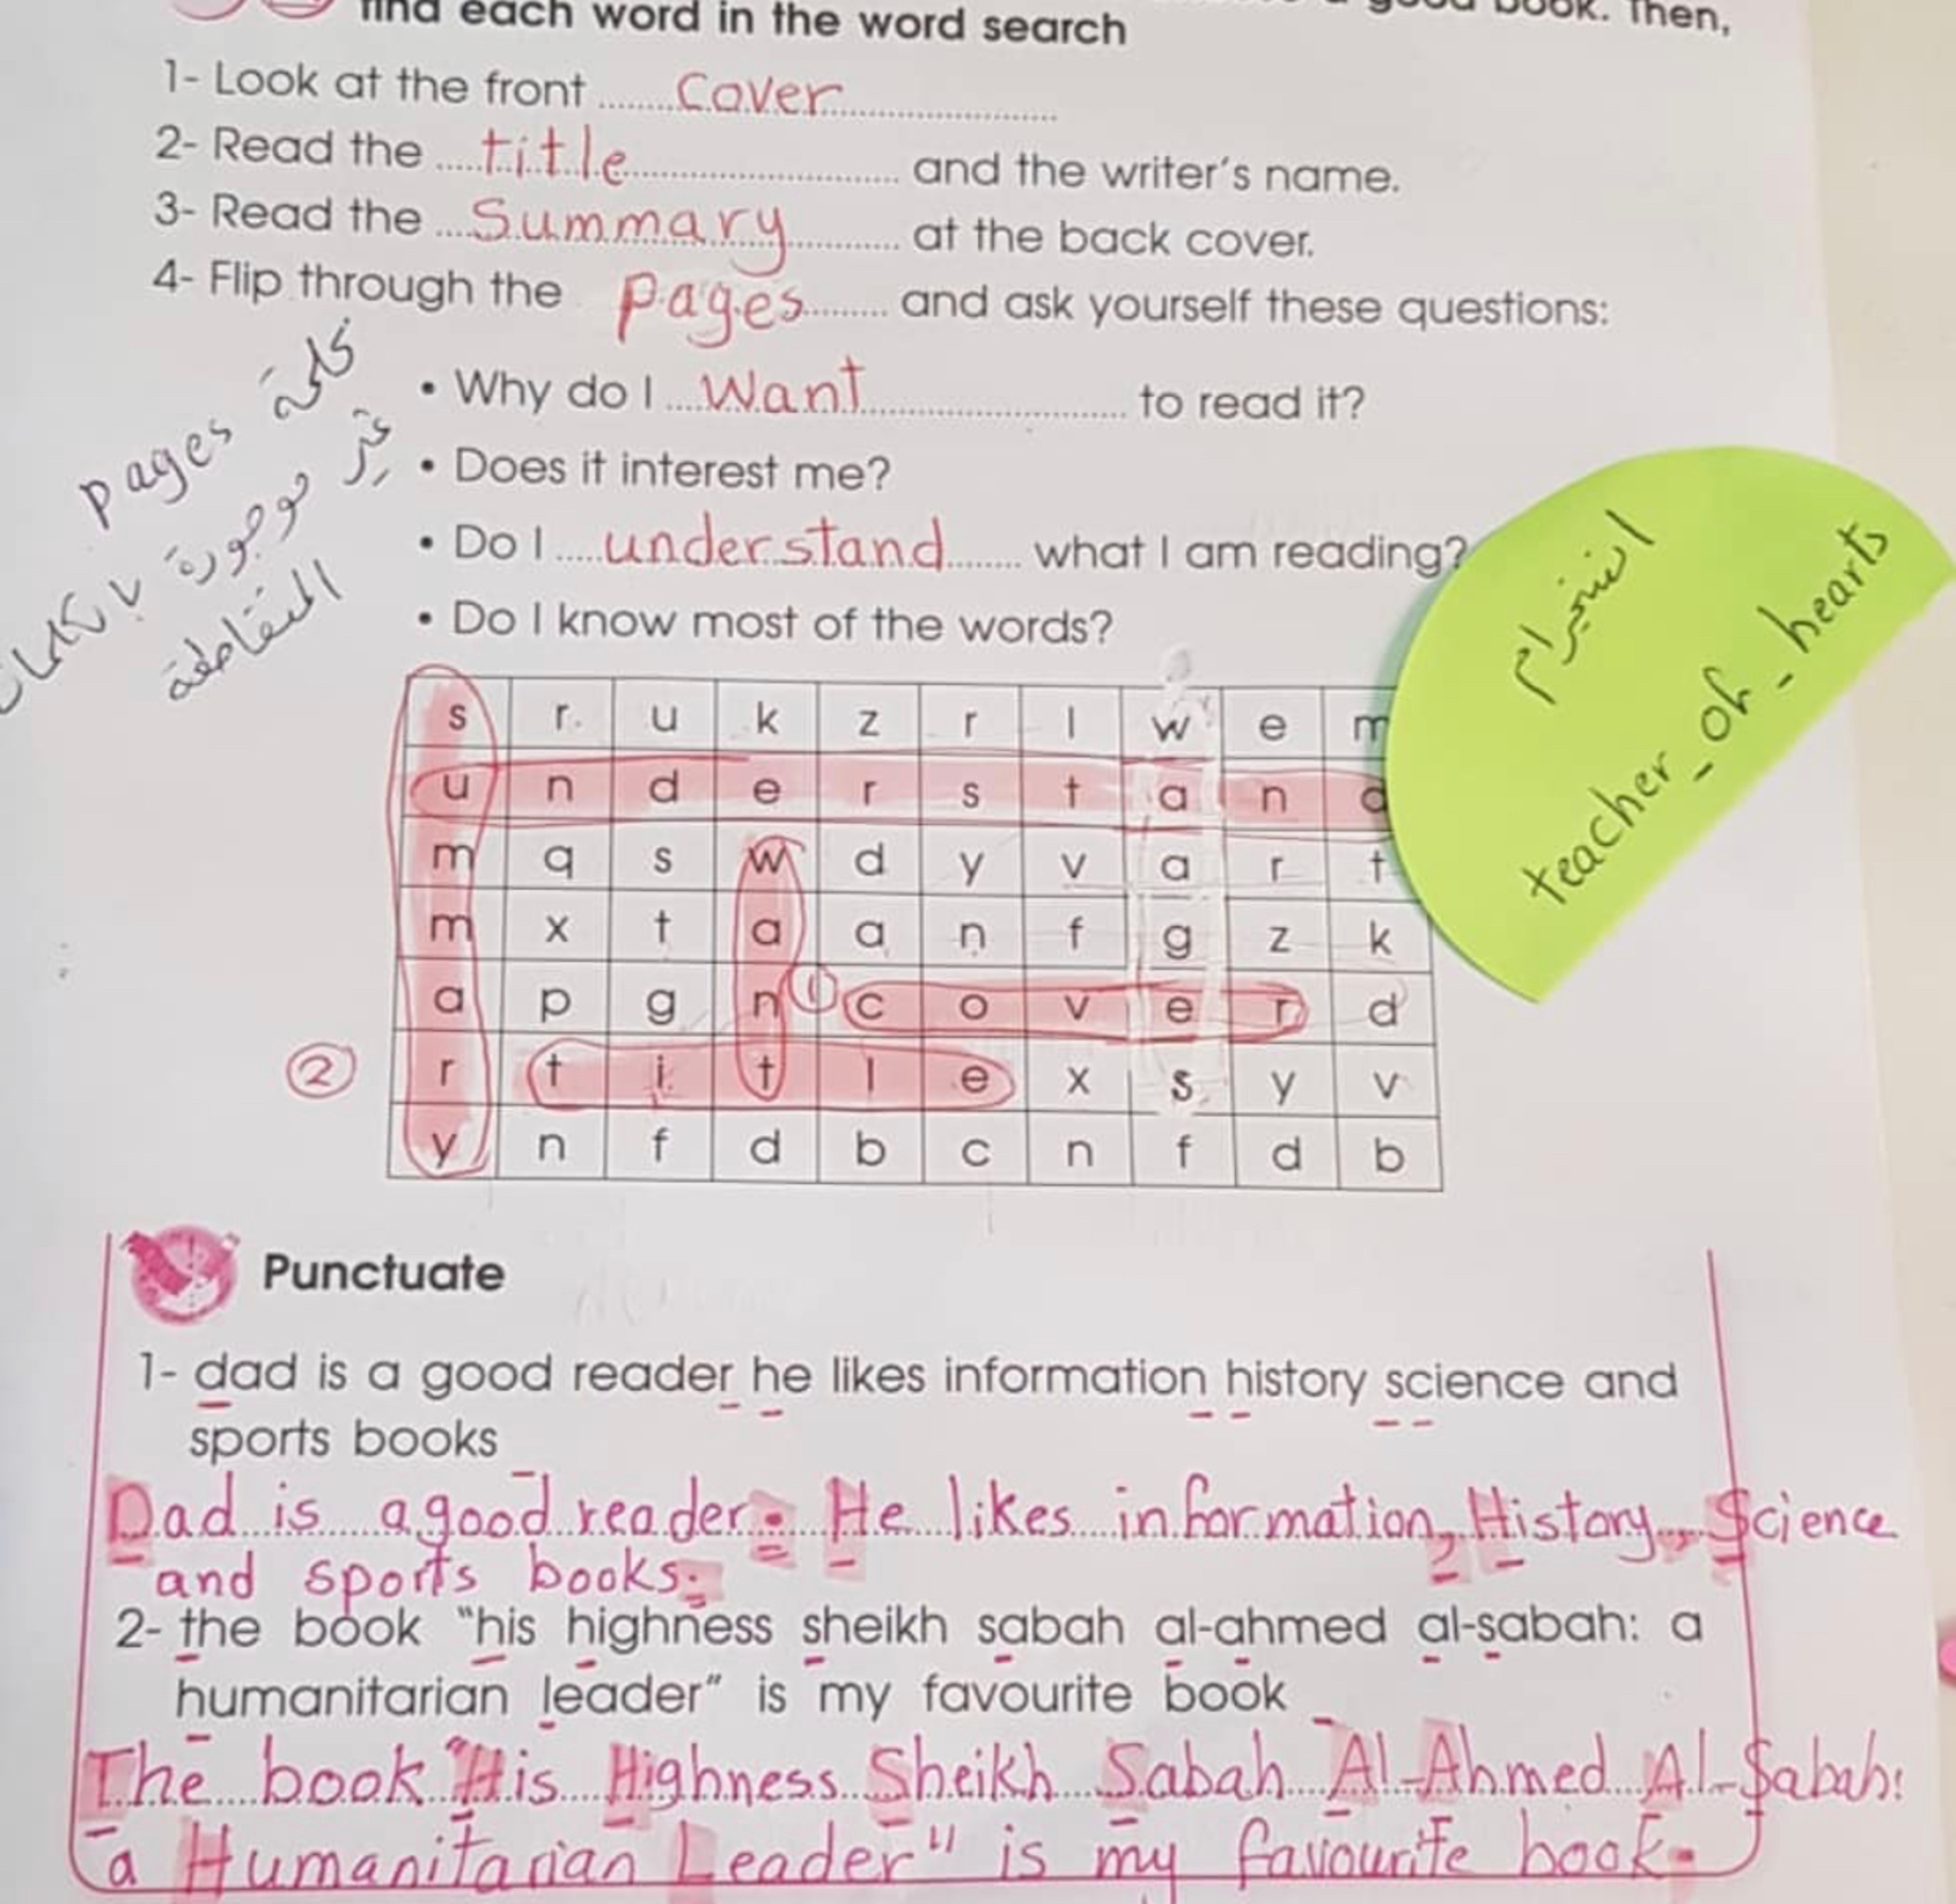 find each word in the word search
good book. Then,
1- Look at the front ........ Cover ........
2- Read the .... title ........ and the writer's name.
3- Read the .... Summary ........ at the back cover.
4- Flip through the pages ........ and ask yourself these questions:
• Why do I .... Want ........ to read it?
• Does it interest me?
• Do I .... understand ........ what I am reading?
• Do I know most of the words?
كلمة pages
غير موجودة بالكلمات
المتقاطعة
انستجرام
teacher_of_hearts
s r u k z r l w e m
u n d e r s t a n d
m q s w d y v a r t
m x t a a n f g z k
a p g n ① c o v e r d
② r t i t l e x s y v
y n f d b c n f d b
Punctuate
1- dad is a good reader he likes information history science and
sports books
Dad is a good reader. He likes information, History, Science
and sports books.
2- the book "his highness sheikh sabah al-ahmed al-sabah: a
humanitarian leader" is my favourite book
The book "His Highness Sheikh Sabah Al-Ahmed Al-Sabah:
a Humanitarian Leader" is my favourite book.